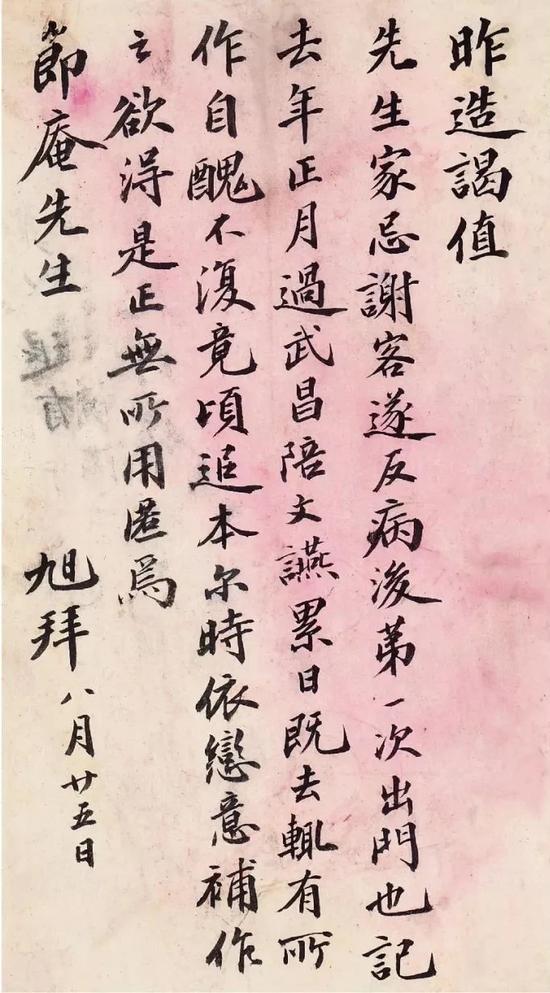 昨造謁值
先生家忌謝客遂反病後第一次出門也記
去年正月過武昌陪文讌累日既去輒有所
作自醜不復竟頃追本尓時依戀意補作
之欲得是正無所用匿焉
節庵先生
旭拜 八月廿五日